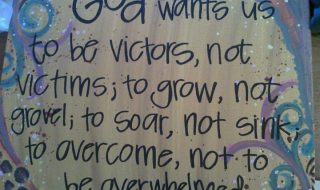 God wants us
to be victors, not
victims; to grow, not
grovel; to soar, not sink;
to overcome, not to
be overwhelmed